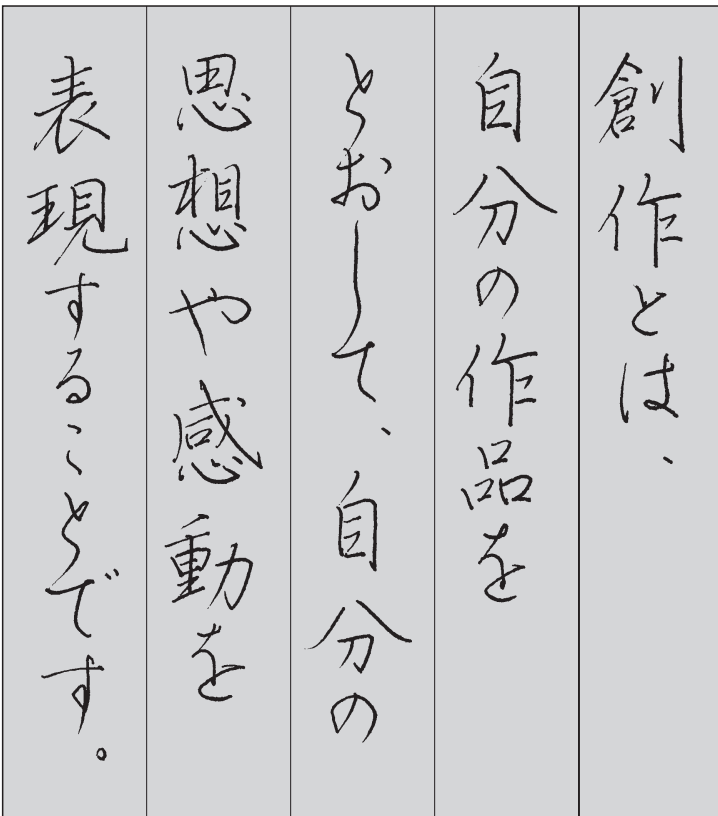 創作とは、
自分の作品を
とおして、自分の
思想や感動を
表現することです。